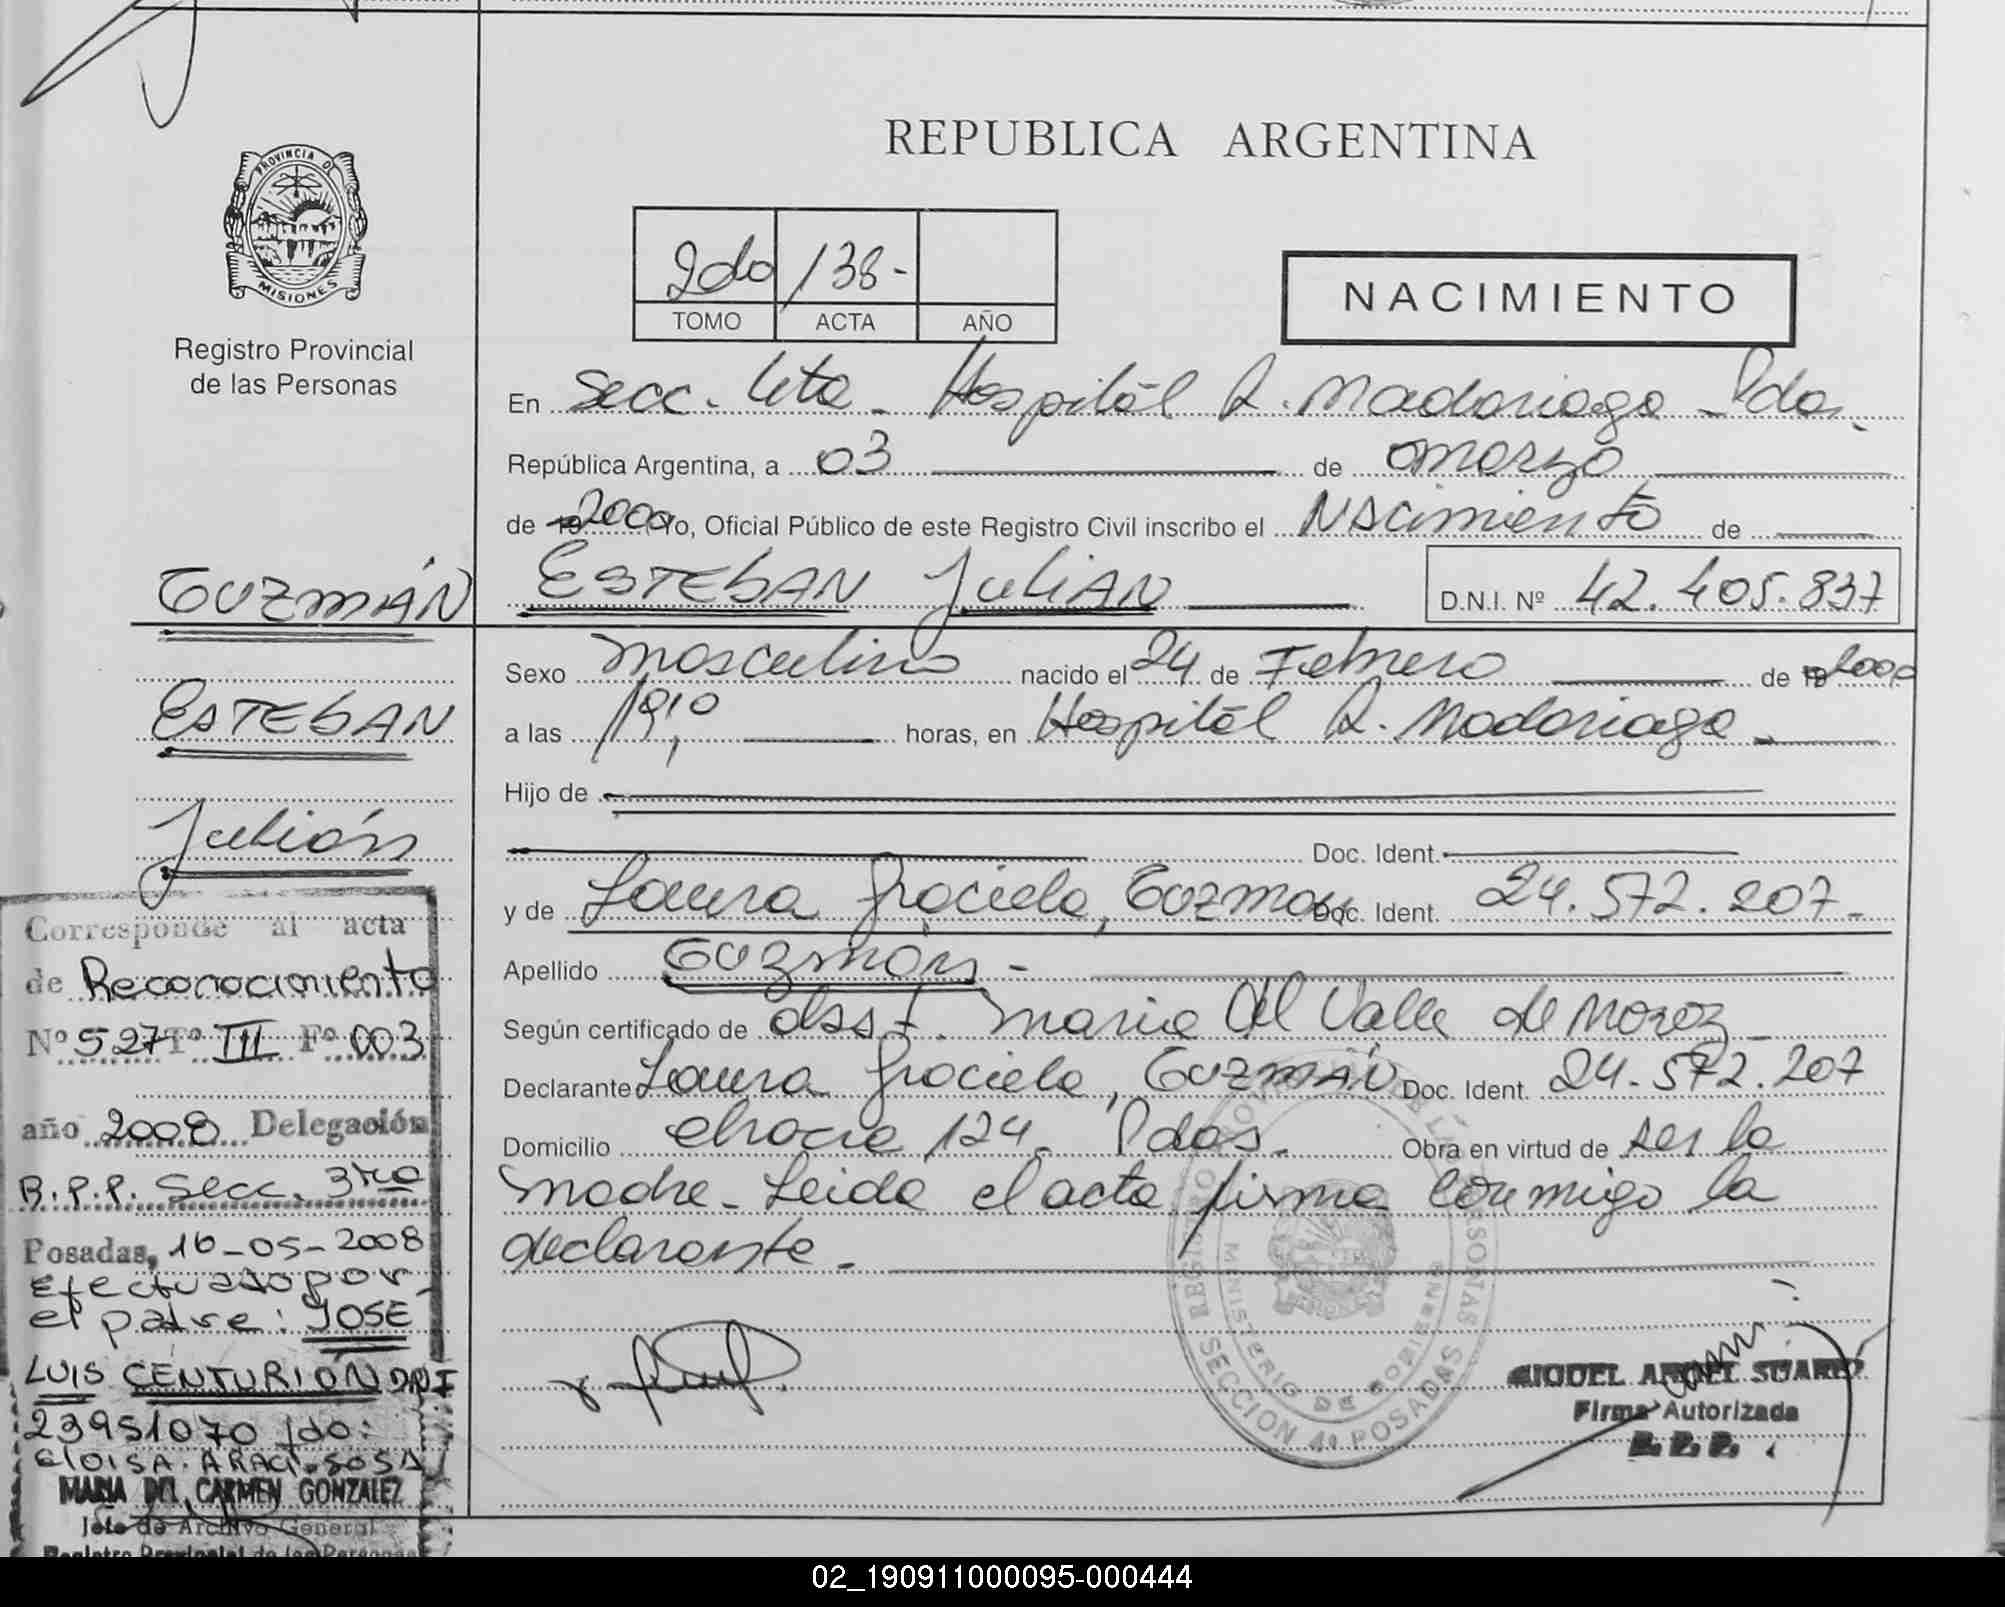 REPUBLICA ARGENTINA
PROVINCIA DE
MISIONES
Registro Provincial
de las Personas
2do 138-
TOMO ACTA AÑO
NACIMIENTO
En Secc. 4ta - Hospital R. Madariaga - Pdas.
República Argentina, a 03 de marzo
de 2000 Yo, Oficial Público de este Registro Civil inscribo el Nacimiento de
ESTEBAN JULIAN D.N.I. Nº 42.405.837
GUZMÁN
ESTEBAN
Julián
Sexo masculino nacido el 24 de Febrero de 19 2000
a las 19,10 horas, en Hospital R. Madariaga -
Hijo de
Doc. Ident.
y de Laura Graciela, Guzman Doc. Ident. 24.572.207-
Apellido GUZMÁN -
Según certificado de María del Valle de
Declarante Laura Graciela, GUZMÁN Doc. Ident. 24.572.207
Domicilio 124 - Pdas. Obra en virtud de ser la
madre - Leida el acta firma conmigo la
declarante -
Corresponde al acta
de Reconocimiento
Nº 527 Tº III Fº 003
año 2008 Delegación
R.P.P. Secc. 3ra
Posadas, 16-05-2008
Efectuado por
el padre: JOSE
LUIS CENTURIÓN DNI
23951070 fdo:
ELOISA ARACI SOSA
MARIA DEL CARMEN GONZALEZ
Jefe de Archivo General
Registro Provincial de las Personas
REGISTRO PROVINCIAL DE LAS PERSONAS
MINISTERIO DE GOBIERNO
SECCION 4ª POSADAS
MIGUEL ANGEL SUAREZ
Firma Autorizada
R. P. P.
02_190911000095-000444